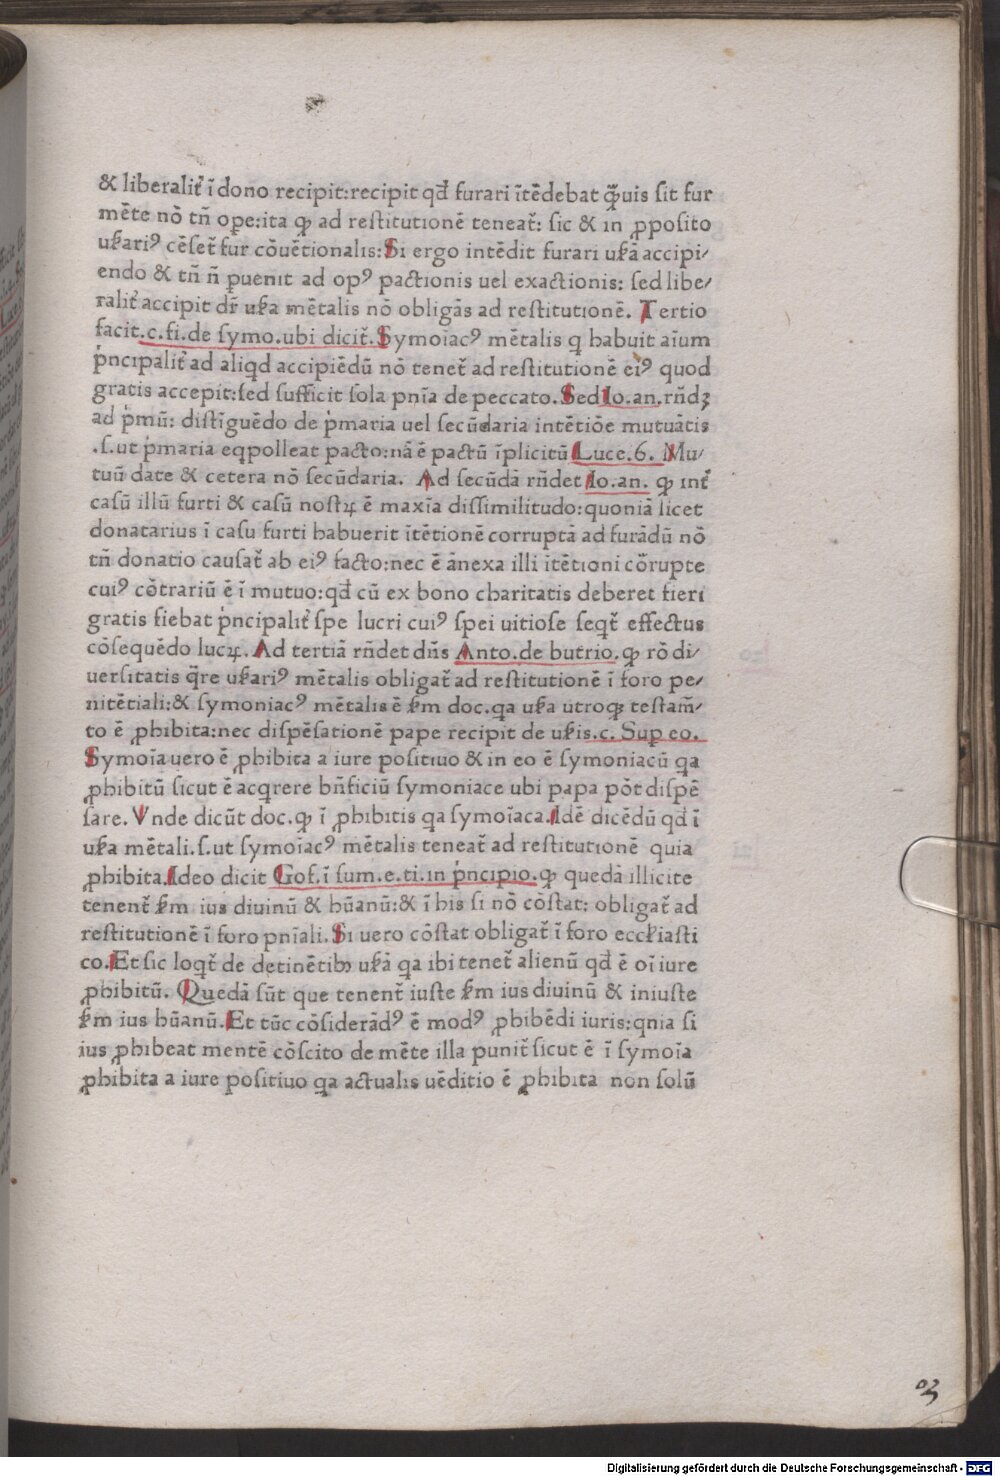 & liberalit̃ ĩ dono recipit:recipit qd̃ furari ĩtẽdebat q̃uis sit fur
mẽte nõ tñ ope:ita ꝙ ad restitutionẽ teneat̃: sic & in ꝓposito
uſ̷ariꝰ cẽset̃ fur cõuẽtionalis:Si ergo intẽdit furari uſ̷ã accipi/
endo & tñ ñ puenit ad opꝰ pactionis uel exactionis: sed libe/
ralit̃ accipit dr̃ uſ̷a mẽtalis nõ obligãs ad restitutionẽ. Tertio
facit.c.fi.de symo.ubi dicit̃.Symoĩacꝰ mẽtalis q habuit aĩum
p̍ncipalit̃ ad aliqd accipiẽdũ nõ tenet̃ ad restitutionẽ eiꝰ quod
gratis accepit:sed sufficit sola pnĩa de peccato.Sed Io.an.rñdꝫ
ad p̍mũ: distĩguẽdo de p̍maria uel secũdaria intẽtiõe mutuãtis
.s.ut p̍maria eqpolleat pacto:nã ẽ pactũ ĩplicitũ Luce.6. Mu/
tuũ date & cetera nõ secũdaria. Ad secũdã rñdet Io.an. ꝙ int̃
casũ illũ furti & casũ nostꝝ ẽ maxĩa dissimilitudo:quoniã licet
donatarius ĩ casu furti habuerit ĩtẽtionẽ corruptã ad furãdũ nõ
tñ donatio causat̃ ab eiꝰ facto:nec ẽ ãnexa illi itẽtioni cõrupte
cuiꝰ cõtrariũ ẽ ĩ mutuo:qd̃ cũ ex bono charitatis deberet fieri
gratis fiebat p̍ncipalit̃ spe lucri cuiꝰ spei uitiose seqt̃ effectus
cõsequẽdo lucꝝ. Ad tertiã rñdet dñs Anto.de butrio.ꝙ rõ di/
uersitatis q̃re uſ̷ariꝰ mẽtalis obligat̃ ad restitutionẽ ĩ foro pe/
nitẽtiali:& symoniacꝰ mẽtalis ẽ ẜm doc.qa uſ̷a utroqꝫ testam̃/
to ẽ ꝓhibita:nec dispẽsationẽ pape recipit de uſ̷is.c. Sup eo.
Symoĩa uero ẽ ꝓhibita a iure positiuo & in eo ẽ symoniacũ qa
ꝓhibitũ sicut ẽ acqrere bñficiũ symoniace ubi papa põt dispẽ
sare. Vnde dicũt doc.ꝙ ĩ ꝓhibitis qa symoĩaca.Idẽ dicẽdũ qd̃ ĩ
uſ̷a mẽtali.s.ut symoĩacꝰ mẽtalis teneat̃ ad restitutionẽ quia
ꝓhibita.Ideo dicit Gof.ĩ sum.e.ti.in p̍ncipio.ꝙ quedã illicite
tenent̃ ẜm ius diuinũ & hũanũ:& ĩ his si nõ cõstat: obligat̃ ad
restitutionẽ ĩ foro pnĩali.Si uero cõstat obligat̃ ĩ foro eccl̃iasti
co.Et sic loqt̃ de detinẽtibꝫ uſ̷ã qa ibi tenet̃ alienũ qd̃ ẽ oĩ iure
ꝓhibitũ. Quedã sũt que tenent̃ iuste ẜm ius diuinũ & iniuste
ẜm ius hũanũ.Et tũc cõsiderãdꝰ ẽ modꝰ ꝓhibẽdi iuris:qnia si
ius ꝓhibeat mentẽ cõscito de mẽte illa punit̃ sicut ẽ ĩ symoĩa
ꝓhibita a iure positiuo qa actualis uẽditio ẽ ꝓhibita non solũ
Digitalisierung gefördert durch die Deutsche Forschungsgemeinschaft - DFG